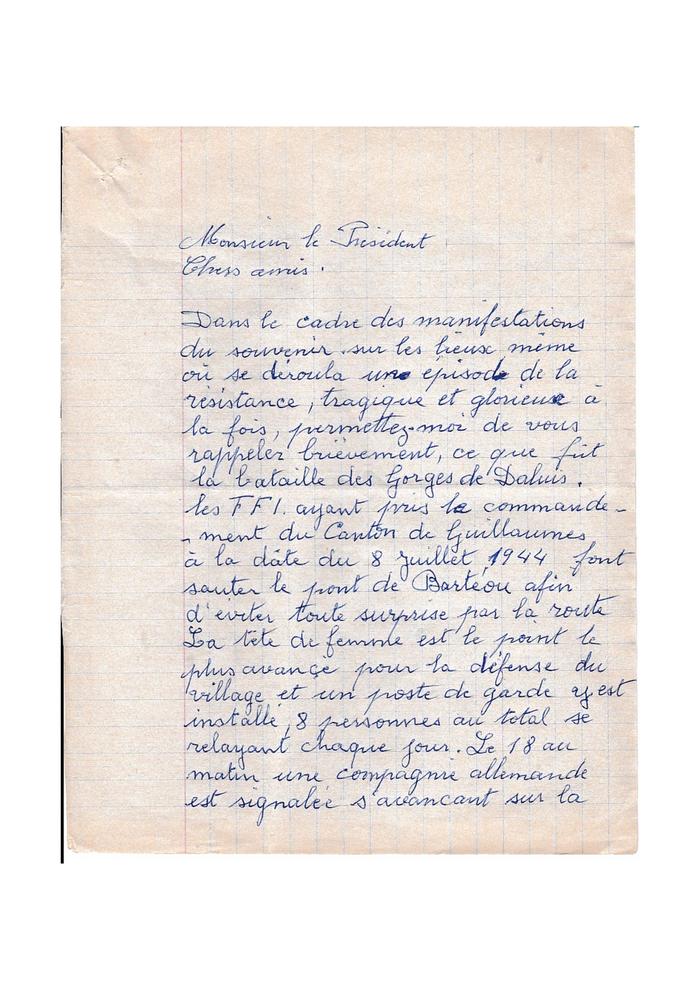 Monsieur le Président
Chers amis.
Dans le cadre des manifestations
du souvenir sur les lieux même
où se déroula une épisode de la
résistance, tragique et glorieuse à
la fois, permettez-moi de vous
rappeler brièvement, ce que fût
la bataille des Gorges de Daluis.
les FFI. ayant pris le commande-
-ment du Canton de Guillaumes
à la dâte du 8 Juillet, 1944 font
sauter le pont de Bartéou afin
d'éviter toute surprise par la route
La tête de femme est le point le
plus avançe pour la défense du
village et un poste de garde y est
installé, 8 personnes au total se
relayant chaque jour. Le 18 au
matin une compagnie allemande
est signalée s'avancant sur la